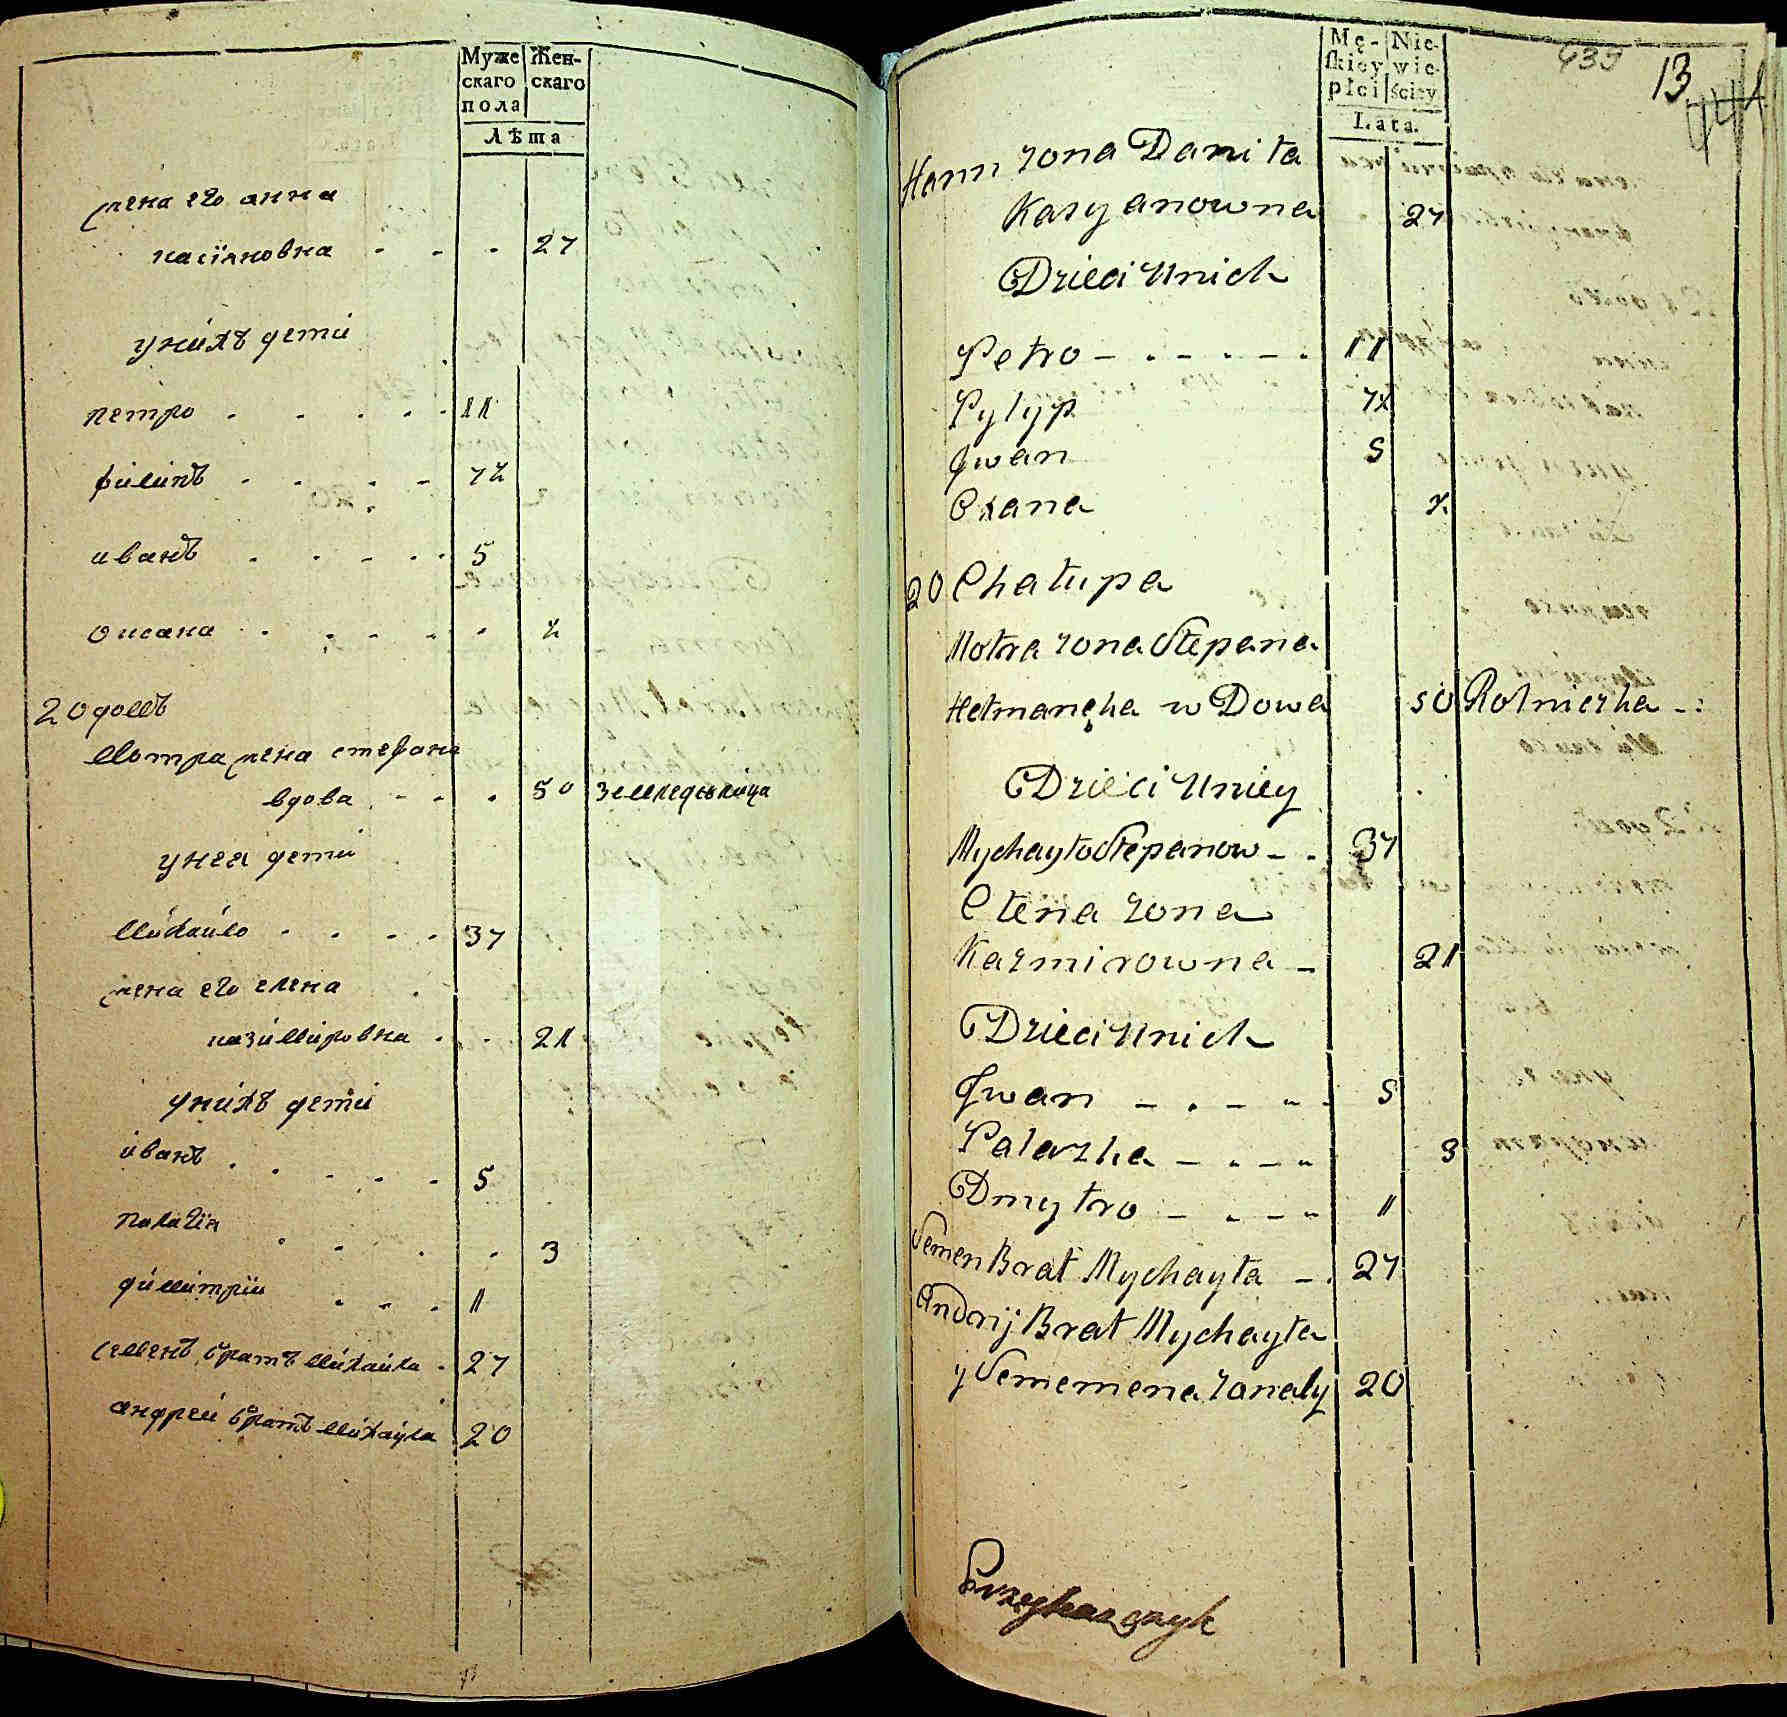 Муже
скаго
пола
Жен-
скаго
Лѣта
жена его анна
касіяновна - - - 27
унихъ дети
петро . . . . . 11
филипъ . . . - 7½
иванъ . . . . . 5
оксана . . . . . ½
20 домъ
Мотра жена стефана
вдова - - . 50 земледѣлица
унеа дети
михайло . . . . 37
жена его елена
казимировка . . . 21
унихъ дети
иванъ . . . . . 5
палагія . . . . . 3
димитрїи . . . 1
семенъ братъ михаила . 27
андреи братъ михаула 20
Mę-
skiey
płci
Nie-
wie-
ściey
Lata.
439
13
441
Hann żona Daniła
Kasyanowna 27
Dzieci Unich
Petro - . - . - . 11
Pylyp 7½
Jwan 5
Oxana ½
20 Chałupa
Motra żona Stepana
Hetmanęka w Dowa 50 Rolniczka - :
Dzieci Uniey
Mychayło Stepanow - . 37
Ołena żona
Kazmirowna - 21
Dzieci Unich
Jwan - . - " - 5
Palazka - " - " 3
Dmytro - . - - " 1
Semen Brat Mychayła - . 27
Andrij Brat Mychayła
y Sememena żonaly 20